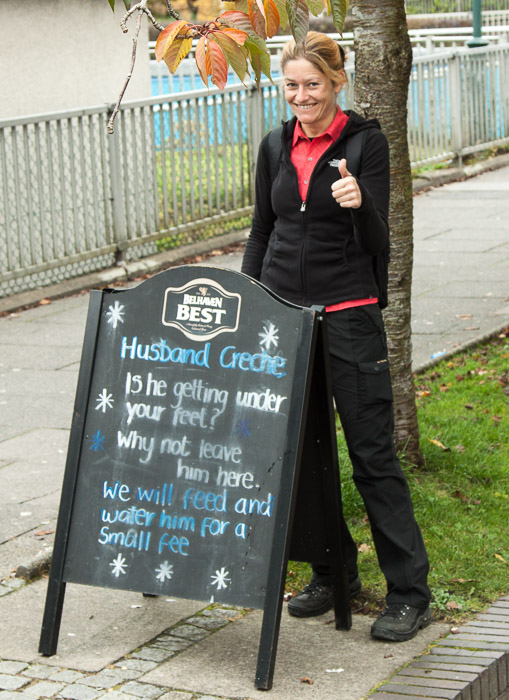 BELHAVEN
BEST
Husband Creche
Is he getting under
your feet?
Why not leave
him here.
We will feed and
water him for a
small fee